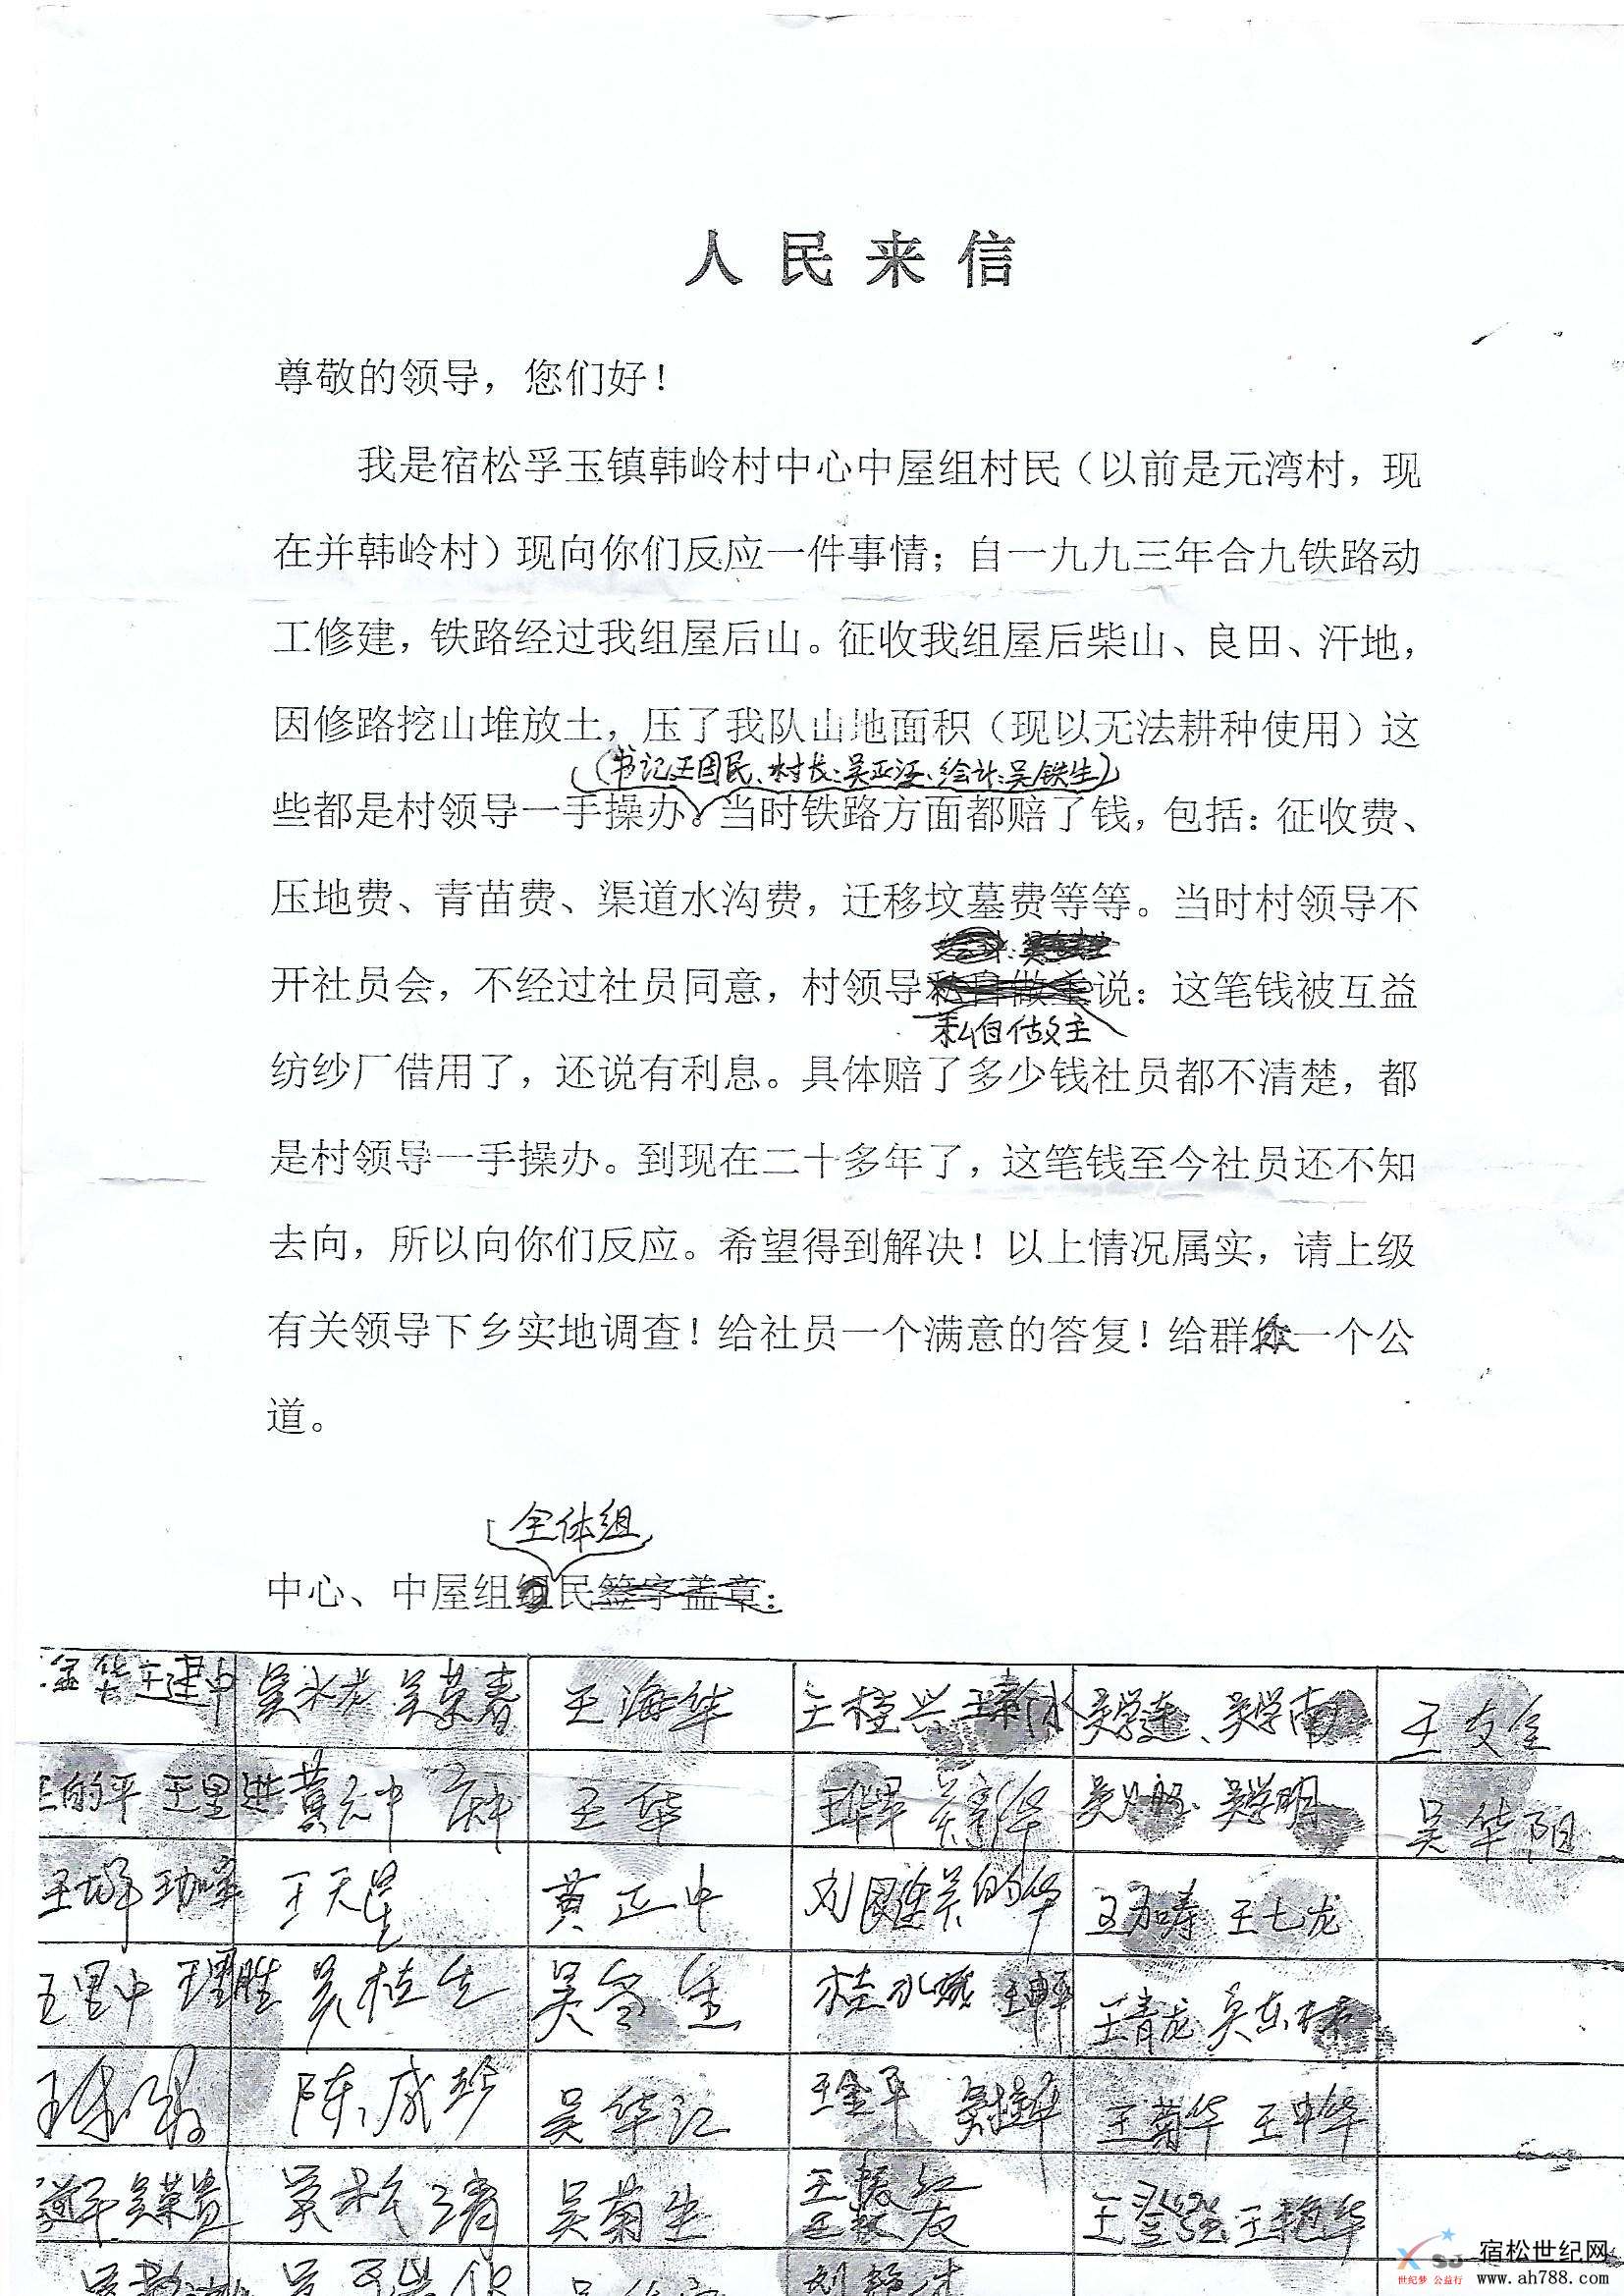 人民来信
尊敬的领导，您们好！
我是宿松孚玉镇韩岭村中心中屋组村民（以前是元湾村，现
在并韩岭村）现向你们反应一件事情；自一九九三年合九铁路动
工修建，铁路经过我组屋后山。征收我组屋后柴山、良田、汗地，
因修路挖山堆放土，压了我队山地面积（现以无法耕种使用）这
（书记王国民、村长：吴亚汪、会计：吴铁生）
些都是村领导一手操办。当时铁路方面都赔了钱，包括：征收费、
压地费、青苗费、渠道水沟费，迁移坟墓费等等。当时村领导不
开社员会，不经过社员同意，村领导私自做主说：这笔钱被互益
私自做主
纺纱厂借用了，还说有利息。具体赔了多少钱社员都不清楚，都
是村领导一手操办。到现在二十多年了，这笔钱至今社员还不知
去向，所以向你们反应。希望得到解决！以上情况属实，请上级
有关领导下乡实地调查！给社员一个满意的答复！给群众一个公
道。
全体组
中心、中屋组组民签字盖章：
金华 王建中 吴水龙 吴荣春 王海华 王桂兴 吴学莲、吴学南 王友全
王里进 黄元中 王华 吴学明 吴华阳
王天星 黄正中 王七龙
王里中 王理胜 吴桂生 吴冬生 桂水城 王青龙 吴东林
陈成珍 吴华江 王金平 王菊华 王中华
吴荣贵 吴菊生 王振江 王艳华
宿松世纪网
世纪梦 公益行 www.ah788.com